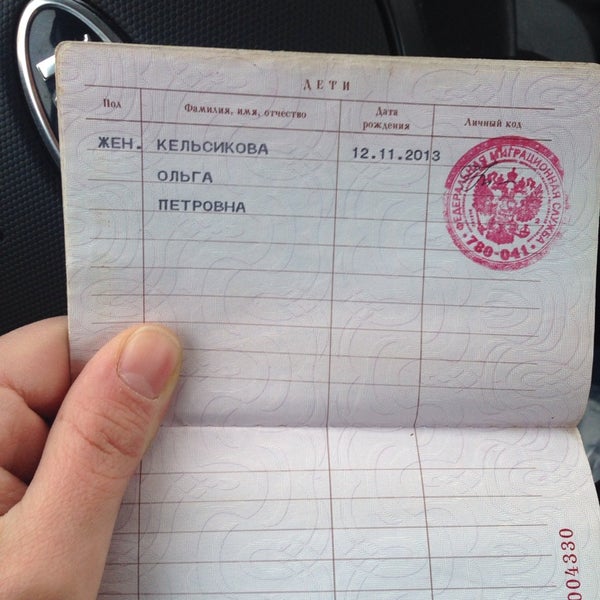 ДЕТИ
Пол Фамилия, имя, отчество Дата рождения Личный код
ЖЕН. КЕЛЬСИКОВА 12.11.2013
ОЛЬГА
ПЕТРОВНА
ФЕДЕРАЛЬНАЯ МИГРАЦИОННАЯ СЛУЖБА
780-041
004330